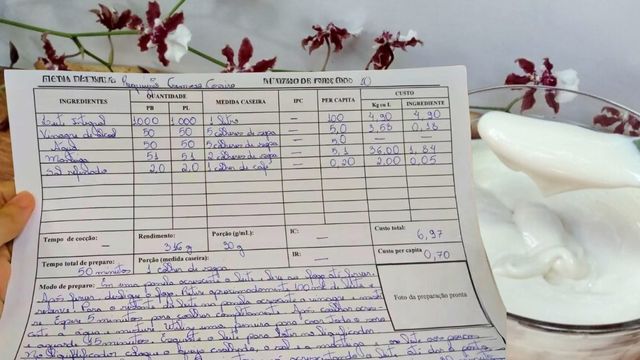 Requeijão Cremoso Caseiro NÚMERO DE PORÇÕES: 10
INGREDIENTES QUANTIDADE MEDIDA CASEIRA IPC PER CAPITA CUSTO
PB PL Kg ou L INGREDIENTE
Leite Integral 1000 1.000 1 litro — 100 4,90 4,90
Vinagre de álcool 50 50 5 colheres de sopa — 5,0 3,58 0,18
Água 50 50 5 colheres de sopa — 5,0 — —
Manteiga 51 51 2 colheres de sopa — 5,1 36,00 1,84
Sal refinado 2,0 2,0 1 colher de café — 0,20 2,00 0,05
Tempo de cocção: — Rendimento: 316 g Porção (g/mL): 30g IC: — Custo total: 6,97
Tempo total de preparo: 50 minutos Porção (medida caseira): 1 colher de sopa IR: — Custo per capita 0,70
Modo de preparo: Em uma panela acrescente o leite leve ao fogo até ferver.
Após ferver, desligue o fogo. Retire aproximadamente 100ml de leite e
reserve. Para o restante do leite na panela acrescente o vinagre e
Espere 5 minutos para coalhar completamente. Após coalhar
a água e misture. Utilize uma peneira para
aguarde 45 minutos. Enquanto o leite
No liquidificador coloque o queijo coalhado, o sal e a manteiga
Foto da preparação pronta